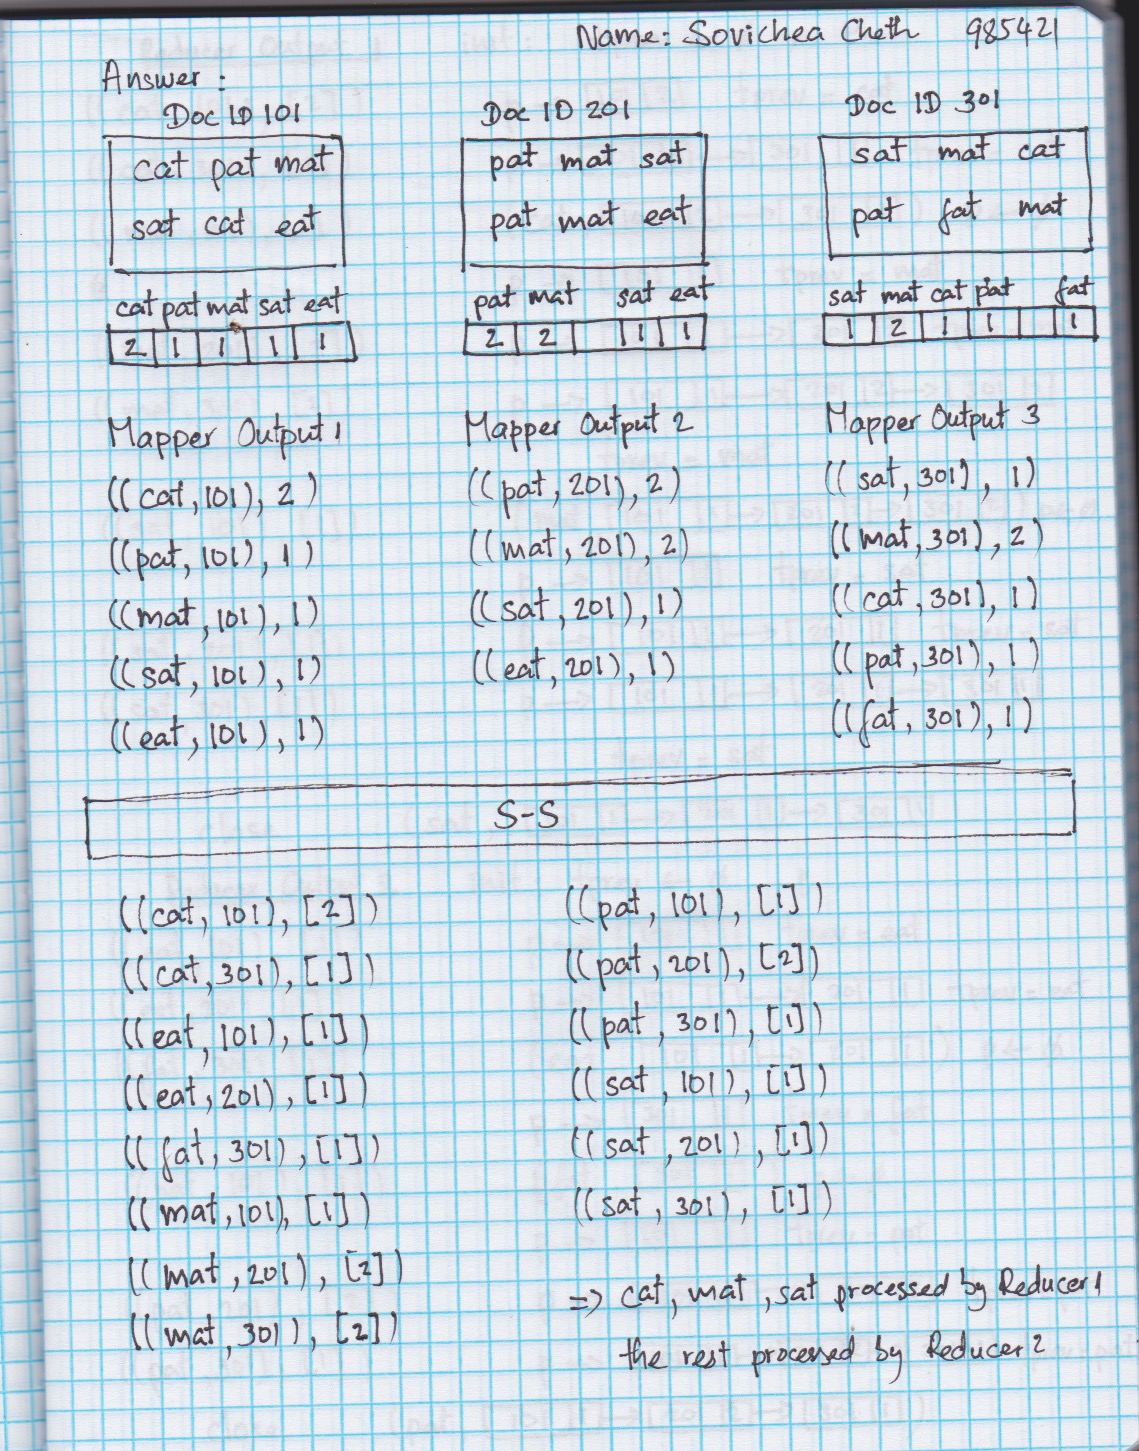 Name: Sovichea Cheth 985421
Answer :
Doc ID 101
cat pat mat
sat cat eat
cat pat mat sat eat
2 1 1 1 1
Doc ID 201
pat mat sat
pat mat eat
pat mat sat eat
2 2 1 1
Doc ID 301
sat mat cat
pat fat mat
sat mat cat pat fat
1 2 1 1 1
Mapper Output 1
((cat, 101), 2)
((pat, 101), 1)
((mat, 101), 1)
((sat, 101), 1)
((eat, 101), 1)
Mapper Output 2
((pat, 201), 2)
((mat, 201), 2)
((sat, 201), 1)
((eat, 201), 1)
Mapper Output 3
((sat, 301), 1)
((mat, 301), 2)
((cat, 301), 1)
((pat, 301), 1)
((fat, 301), 1)
S-S
((cat, 101), [2])
((cat, 301), [1])
((eat, 101), [1])
((eat, 201), [1])
((fat, 301), [1])
((mat, 101), [1])
((mat, 201), [2])
((mat, 301), [2])
((pat, 101), [1])
((pat, 201), [2])
((pat, 301), [1])
((sat, 101), [1])
((sat, 201), [1])
((sat, 301), [1])
=> cat, mat, sat processed by Reducer 1
the rest processed by Reducer 2